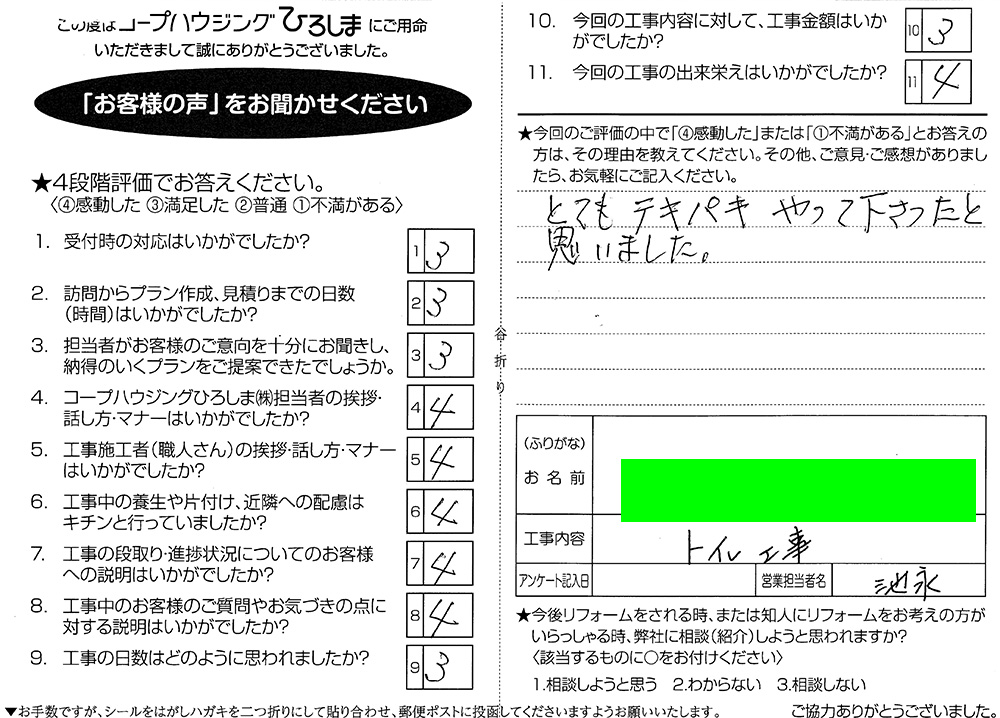 この度はコープハウジングひろしまにご用命
いただきまして誠にありがとうございました。
「お客様の声」をお聞かせください
★4段階評価でお答えください。
〈④感動した ③満足した ②普通 ①不満がある〉
1. 受付時の対応はいかがでしたか?
1 3
2. 訪問からプラン作成、見積りまでの日数
(時間)はいかがでしたか?
2 3
3. 担当者がお客様のご意向を十分にお聞きし、
納得のいくプランをご提案できたでしょうか。
3 3
4. コープハウジングひろしま㈱担当者の挨拶・
話し方・マナーはいかがでしたか?
4 4
5. 工事施工者(職人さん)の挨拶・話し方・マナー
はいかがでしたか?
5 4
6. 工事中の養生や片付け、近隣への配慮は
キチンと行っていましたか?
6 4
7. 工事の段取り・進捗状況についてのお客様
への説明はいかがでしたか?
7 4
8. 工事中のお客様のご質問やお気づきの点に
対する説明はいかがでしたか?
8 4
9. 工事の日数はどのように思われましたか?
9 3
谷折り
10. 今回の工事内容に対して、工事金額はいか
がでしたか?
10 3
11. 今回の工事の出来栄えはいかがでしたか?
11 4
★今回のご評価の中で「④感動した」または「①不満がある」とお答えの
方は、その理由を教えてください。その他、ご意見・ご感想がありまし
たら、お気軽にご記入ください。
とても テキパキ やって下さったと
思いました。
(ふりがな)
お名前
工事内容 トイレ工事
アンケート記入日 営業担当者名 池永
★今後リフォームをされる時、または知人にリフォームをお考えの方が
いらっしゃる時、弊社に相談(紹介)しようと思われますか?
〈該当するものに○をお付けください〉
1.相談しようと思う 2.わからない 3.相談しない
▼お手数ですが、シールをはがしハガキを二つ折りにして貼り合わせ、郵便ポストに投函してくださいますようお願いいたします。
ご協力ありがとうございました。